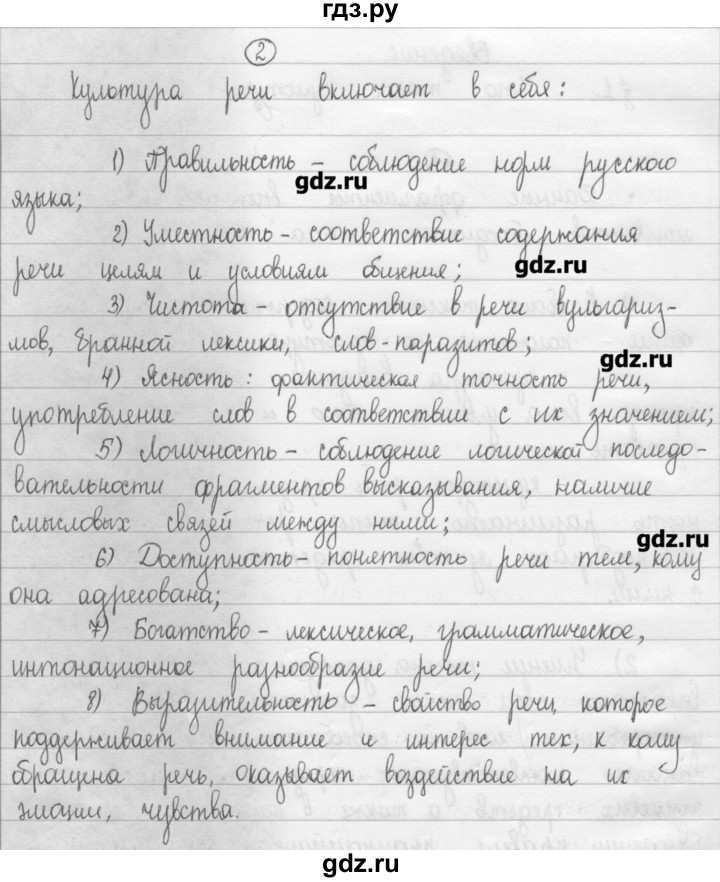 гдз.ру
2
Культура речи включает в себя:
1) Правильность – соблюдение норм русского
gdz.ru
языка;
2) Уместность – соответствие содержания
речи целям и условиям общения;
gdz.ru
3) Чистота – отсутствие в речи вульгариз-
мов, бранной лексики, слов-паразитов;
gdz.ru
4) Ясность: фактическая точность речи,
употребление слов в соответствие с их значением;
5) Логичность – соблюдение логической последо-
вательности фрагментов высказывания, наличие
смысловых связей между ними;
gdz.ru
6) Доступность – понятность речи тем, кому
она адресована;
7) Богатство – лексическое, грамматическое,
интонационное разнообразие речи;
8) Выразительность – свойство речи, которое
поддерживает внимание и интерес тех, к кому
обращена речь, оказывает воздействие на их
эмоции, чувства.
gdz.ru